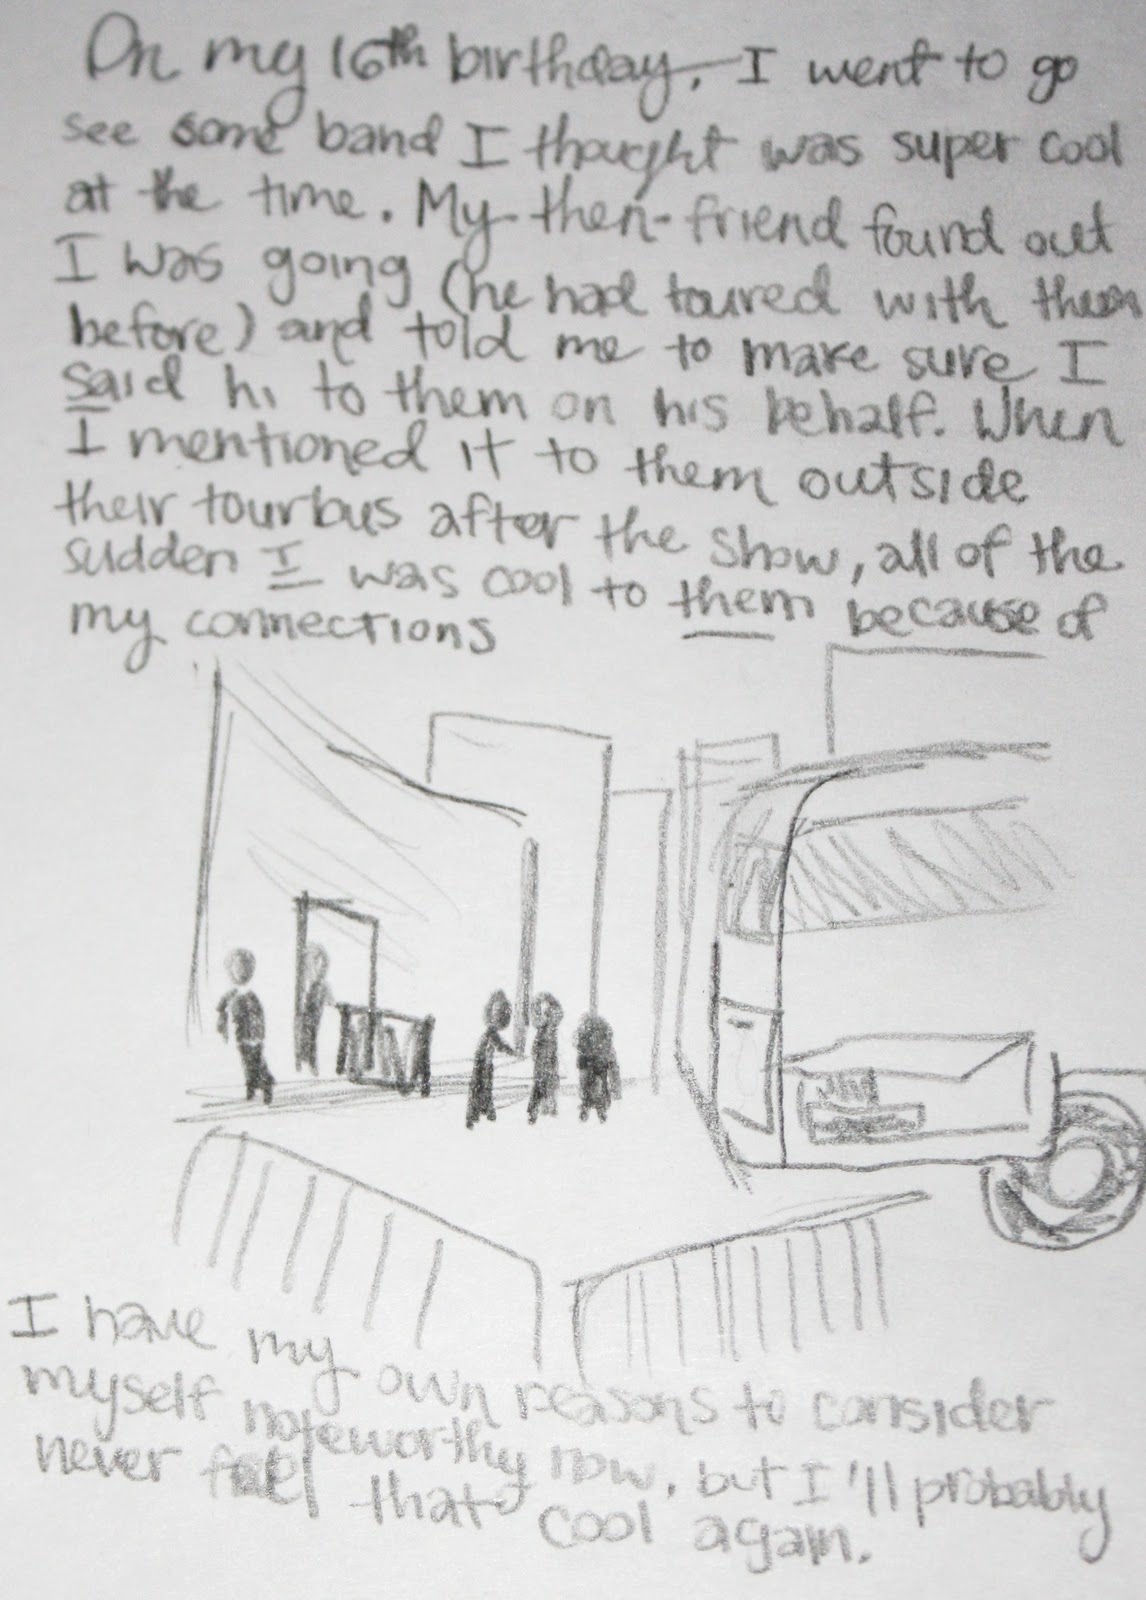 On my 16th birthday, I went to go
see some band I thought was super cool
at the time. My then-friend found out
I was going (he had toured with them
before) and told me to make sure I
said hi to them on his behalf. When
I mentioned it to them outside
their tourbus after the show, all of the
sudden I was cool to them because of
my connections
I have my own reasons to consider
myself noteworthy now, but I'll probably
never feel that cool again.